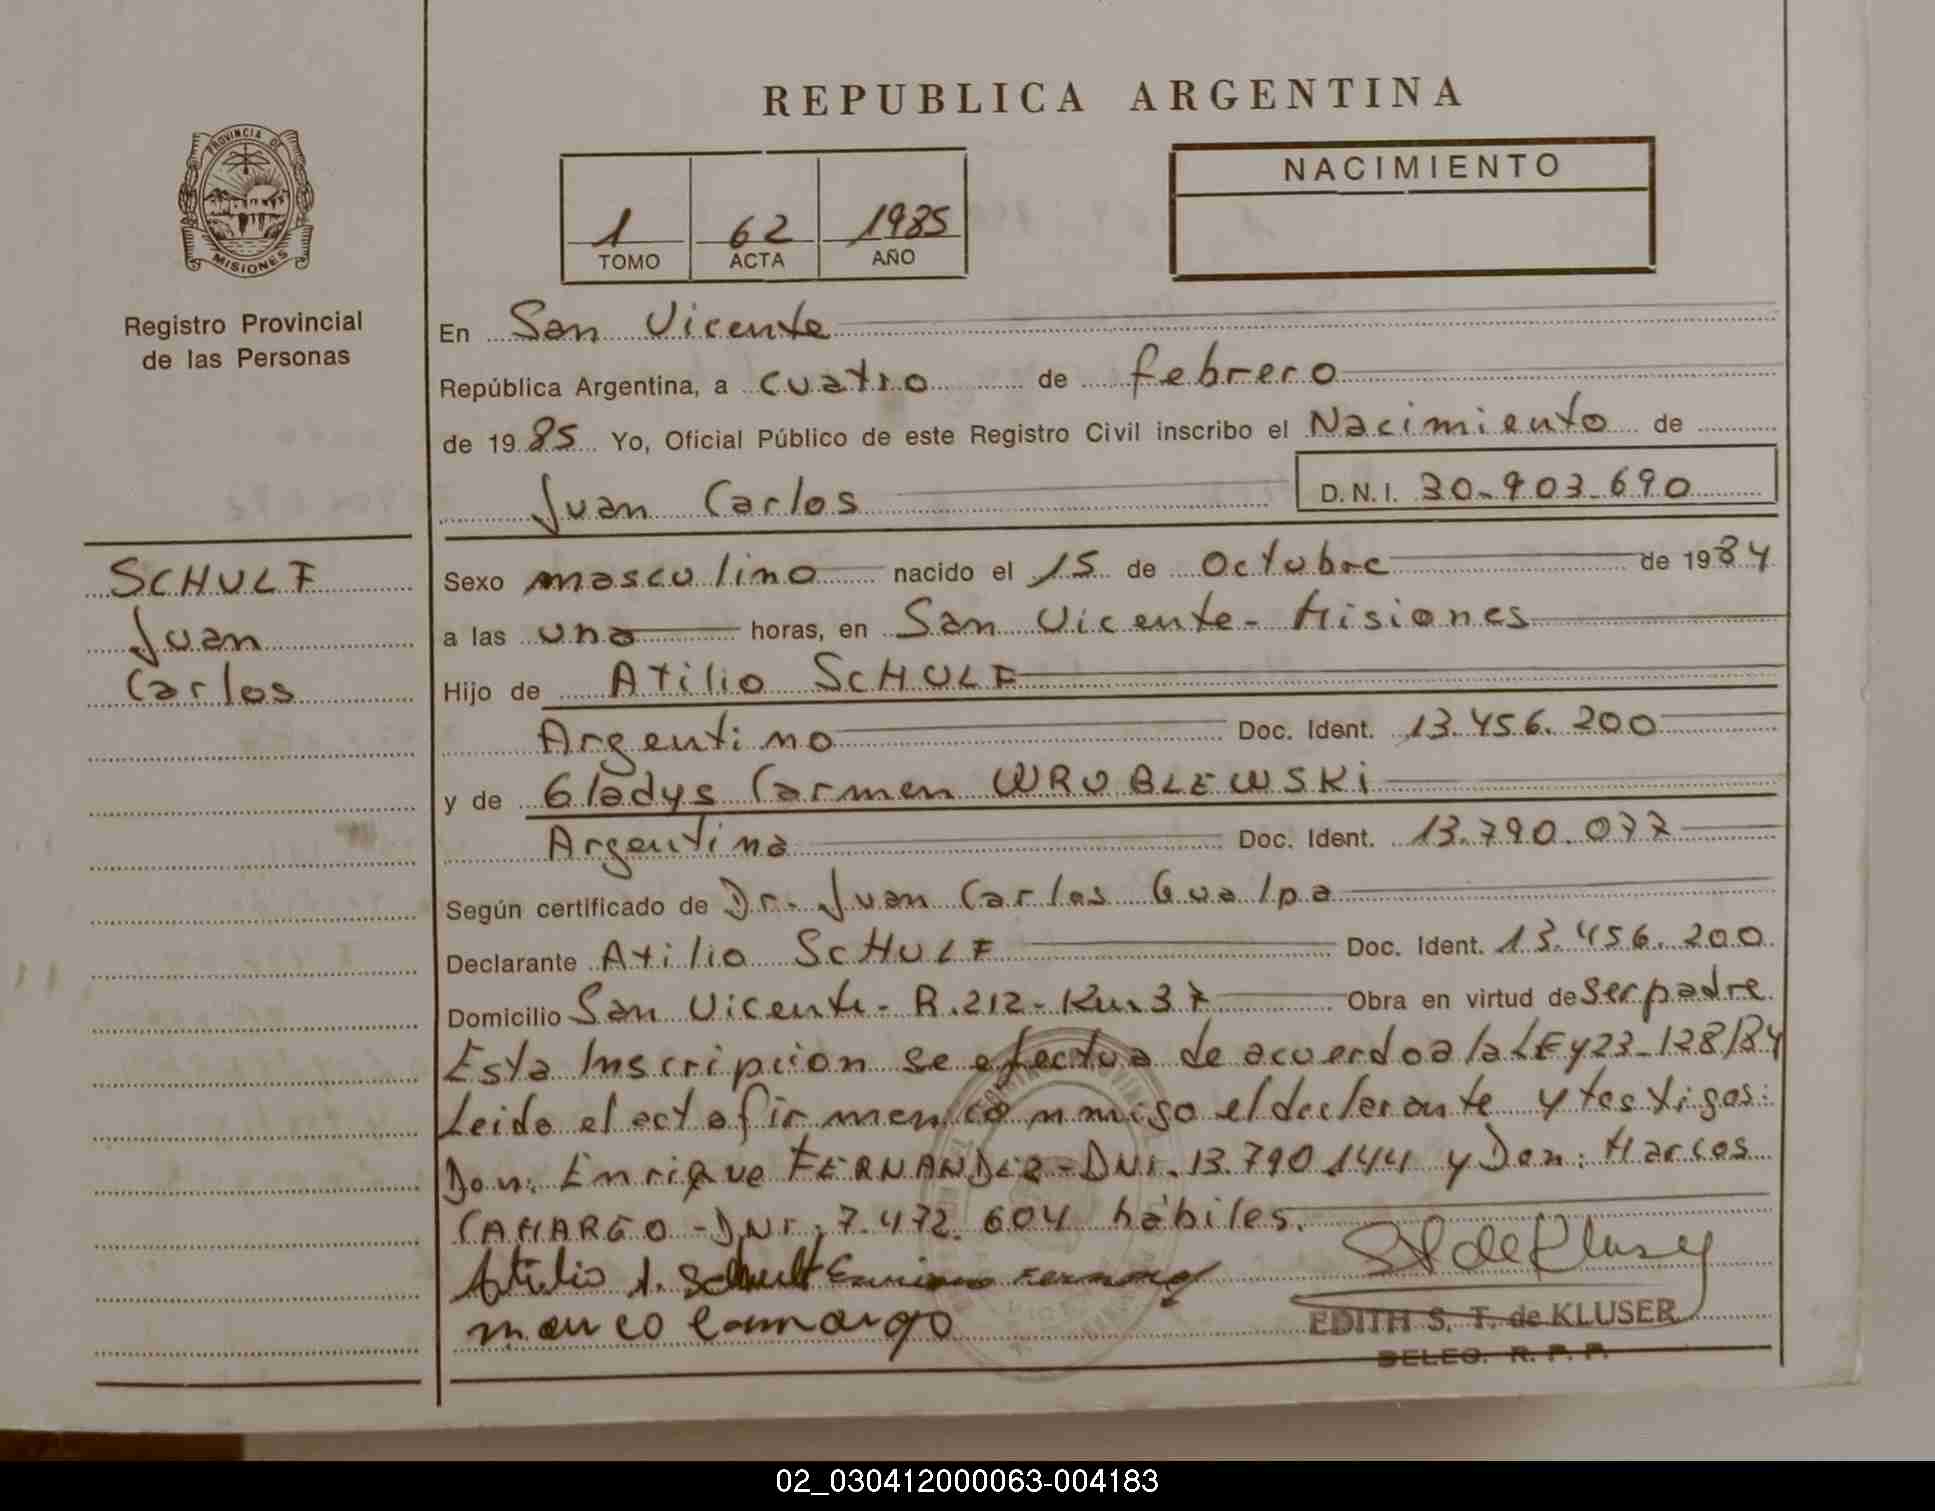 REPUBLICA ARGENTINA
PROVINCIA DE
MISIONES
Registro Provincial
de las Personas
NACIMIENTO
1 62 1985
TOMO ACTA AÑO
En San Vicente
República Argentina, a cuatro de febrero
de 1985 Yo, Oficial Público de este Registro Civil inscribo el Nacimiento de
Juan Carlos D.N.I. 30.903.690
SCHULF
Juan
Carlos
Sexo masculino nacido el 15 de Octubre de 1984
a las una horas, en San Vicente - Misiones
Hijo de Atilio SCHULF
Argentino Doc. Ident. 13.456.200
y de Gladys Carmen WRUBLEWSKI
Argentina Doc. Ident. 13.790.077
Según certificado de Dr. Juan Carlos Gualpa
Declarante Atilio SCHULF Doc. Ident. 13.456.200
Domicilio San Vicente - R.212 - Km 37 Obra en virtud de ser padre
Esta Inscripción se efectua de acuerdo a la LEY 23.128/84
Leido el acta firman conmigo el declarante y testigos:
Don: Enrique FERNANDEZ - DNI. 13.790.144 y Don: Marcos
CAMARGO - DNI. 7.472.604 hábiles.
Atilio A. Schulf
marco Camargo
EDITH S. T. de KLUSER
DELEG. R. P. P.
02_030412000063-004183